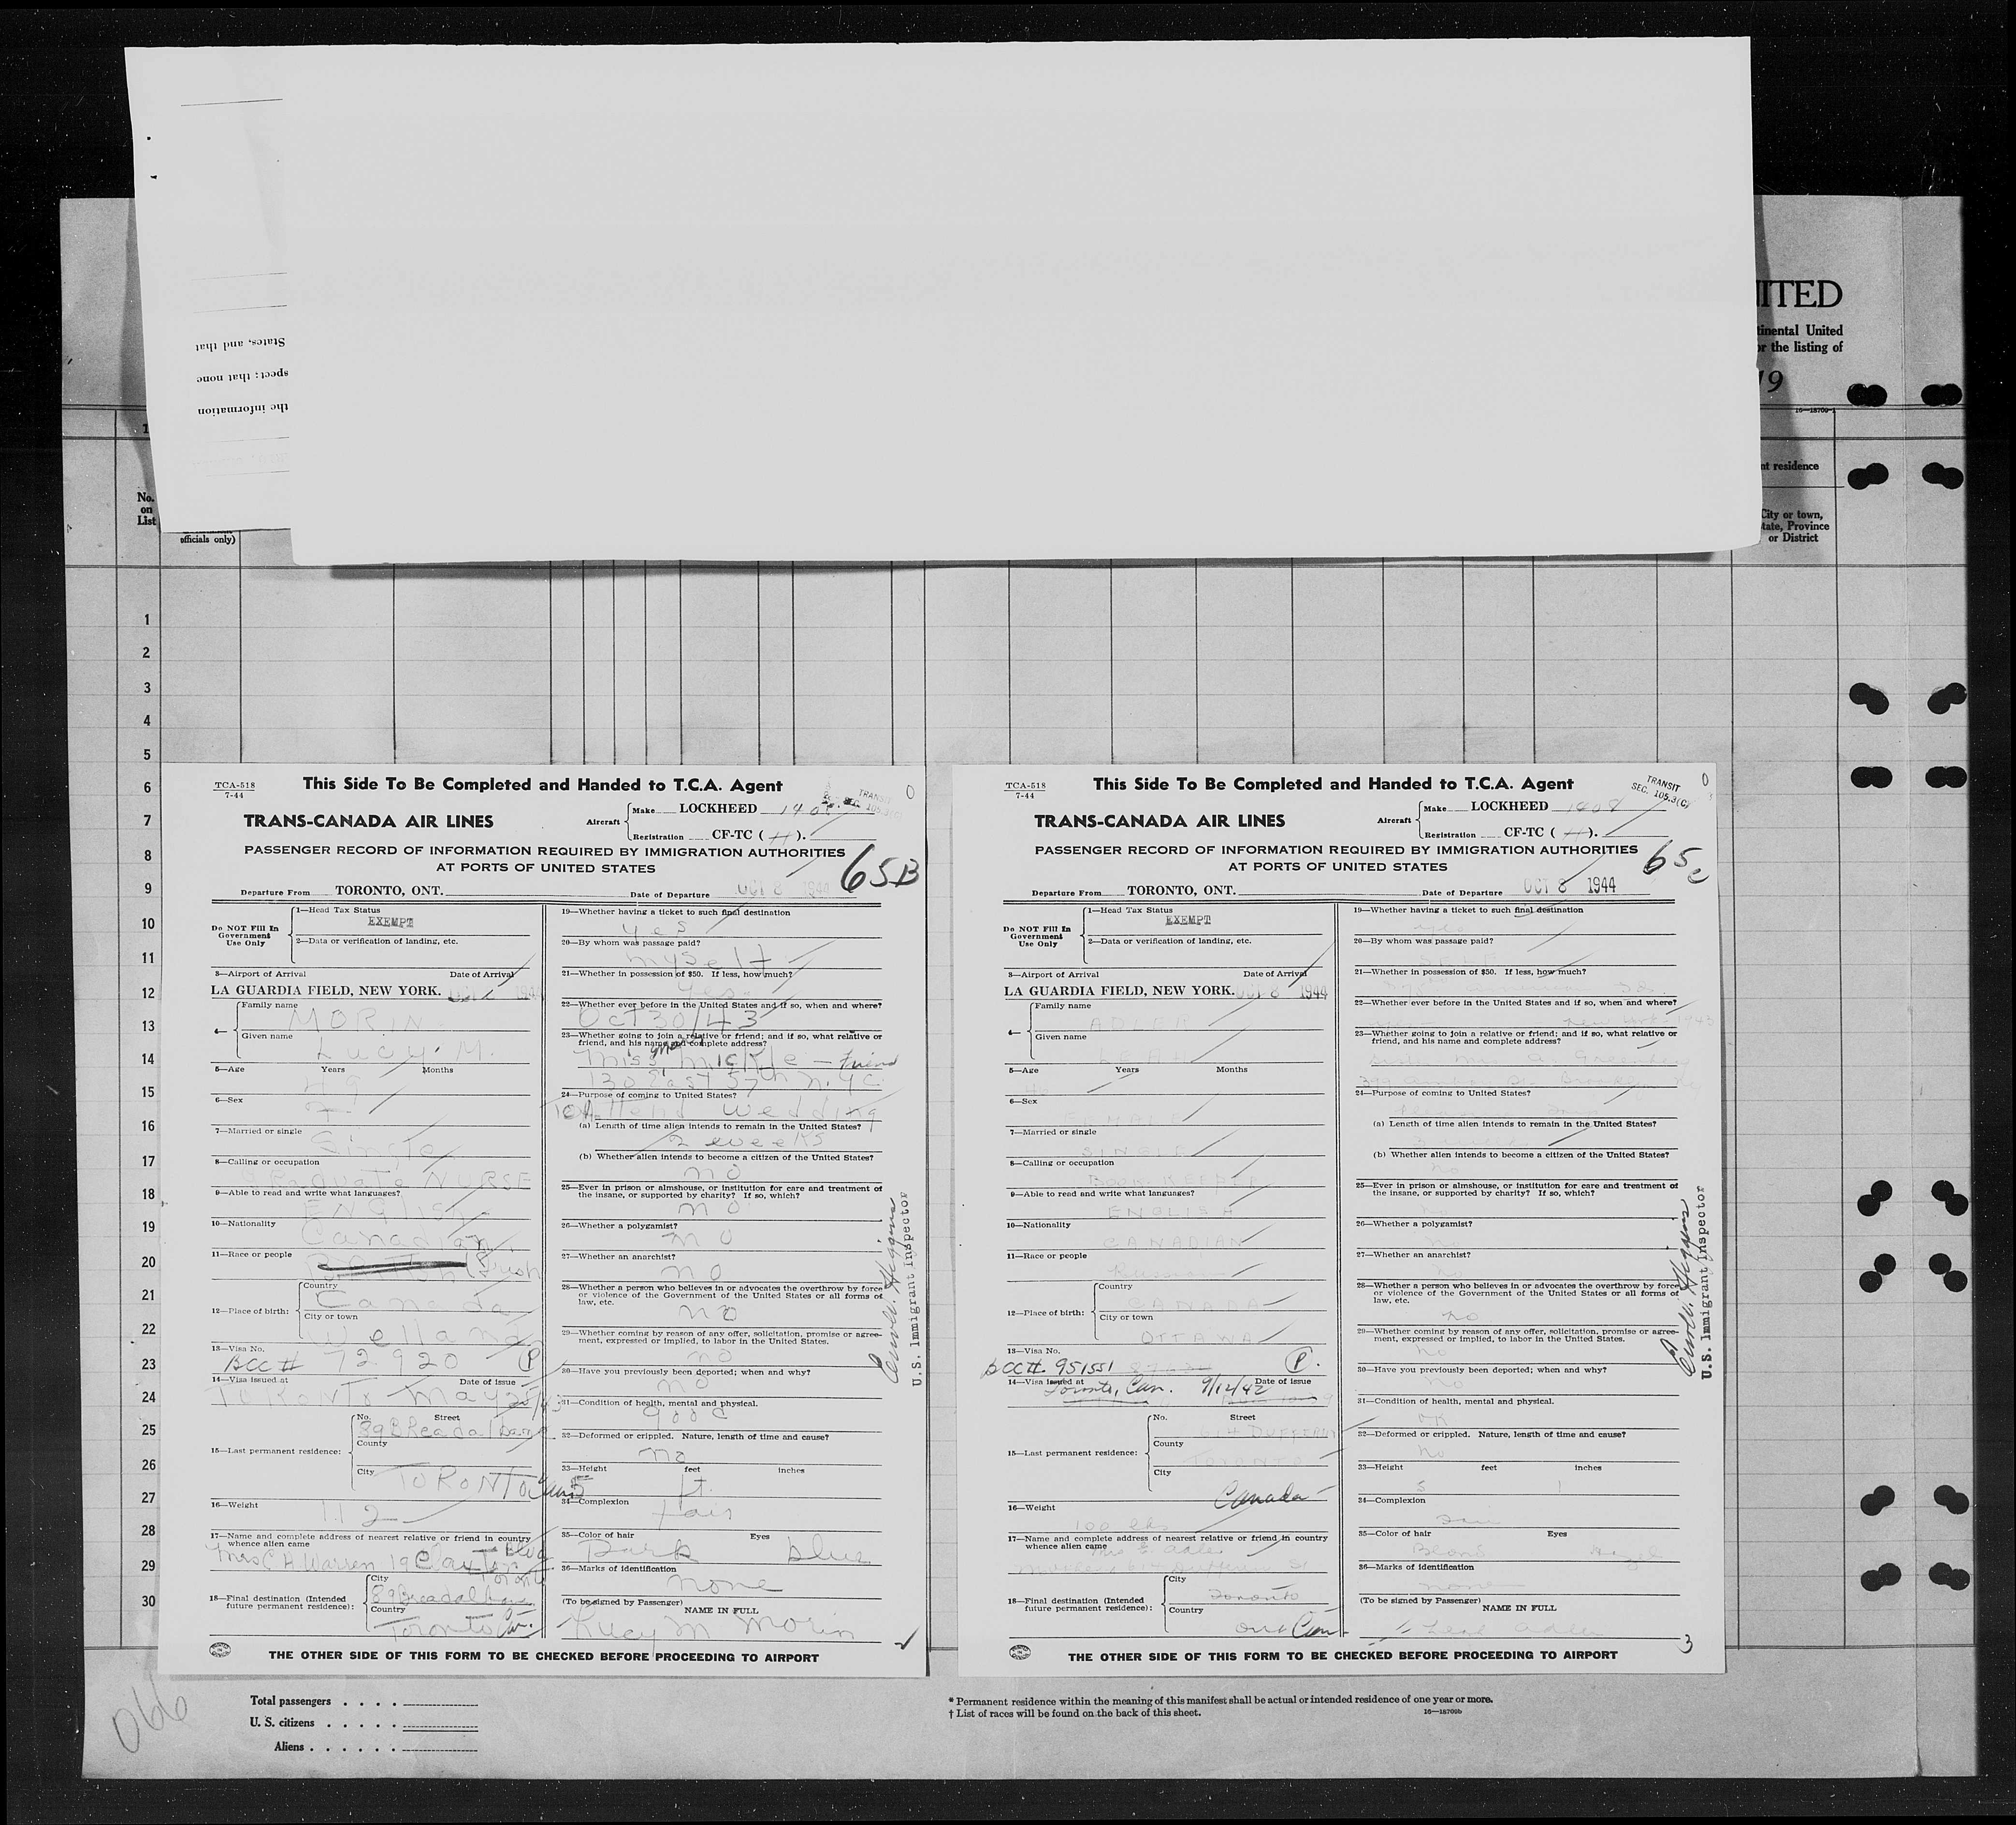 States, and that
spect; that none
the information
ITED
tinental United
or the listing of
19
16—18709-1
nt residence
No.
on
List
officials only)
City or town,
tate, Province
or District
1
2
3
4
5
6
7
8
9
10
11
12
13
14
15
16
17
18
19
20
21
22
23
24
25
26
27
28
29
30
TCA-518
7-44
This Side To Be Completed and Handed to T.C.A. Agent
TRANS-CANADA AIR LINES
Aircraft
Make LOCKHEED
Registration CF-TC ( H ).
PASSENGER RECORD OF INFORMATION REQUIRED BY IMMIGRATION AUTHORITIES
AT PORTS OF UNITED STATES
65B
Departure From TORONTO, ONT. Date of Departure OCT 8 1944
Do NOT Fill In
Government
Use Only
1—Head Tax Status
EXEMPT
2—Data or verification of landing, etc.
3—Airport of Arrival Date of Arrival
LA GUARDIA FIELD, NEW YORK.
4—
Family name
MORIN
Given name
Lucy. M.
5—Age Years Months
49
6—Sex
F
7—Married or single
Single
8—Calling or occupation
Private NURSE
9—Able to read and write what languages?
ENglish
10—Nationality
Canadian
11—Race or people
Irish
12—Place of birth:
Country
Canada
City or town
Welland
13—Visa No.
BCC # 72920 P
14—Visa issued at Date of issue
TORONTO May 25/43
15—Last permanent residence:
No. Street
89 Breadalbane
County
City
TORONTO
16—Weight
112
17—Name and complete address of nearest relative or friend in country
whence alien came
Mrs C H Warren 19 Claxton Blvd
Toronto
18—Final destination (Intended
future permanent residence):
City
89 Breadalbane
Country
Toronto Can.
19—Whether having a ticket to such final destination
yes
20—By whom was passage paid?
myself
21—Whether in possession of $50. If less, how much?
yes
22—Whether ever before in the United States and if so, when and where?
Oct 30/43
23—Whether going to join a relative or friend; and if so, what relative or
friend, and his name and complete address?
Miss Mickle — friend
130 East 57th N.Y.C.
24—Purpose of coming to United States?
To Attend Wedding
(a) Length of time alien intends to remain in the United States?
2 weeks
(b) Whether alien intends to become a citizen of the United States?
no
25—Ever in prison or almshouse, or institution for care and treatment of
the insane, or supported by charity? If so, which?
no
26—Whether a polygamist?
no
27—Whether an anarchist?
no
28—Whether a person who believes in or advocates the overthrow by force
or violence of the Government of the United States or all forms of
law, etc.
no
29—Whether coming by reason of any offer, solicitation, promise or agree-
ment, expressed or implied, to labor in the United States.
no
30—Have you previously been deported; when and why?
no
31—Condition of health, mental and physical.
good
32—Deformed or crippled. Nature, length of time and cause?
no
33—Height feet inches
5 ft.
34—Complexion
fair
35—Color of hair Eyes
Dark blue
36—Marks of identification
none
(To be signed by Passenger)
NAME IN FULL
Lucy M Morin
U.S. Immigrant Inspector
THE OTHER SIDE OF THIS FORM TO BE CHECKED BEFORE PROCEEDING TO AIRPORT
TCA-518
7-44
This Side To Be Completed and Handed to T.C.A. Agent
TRANSIT
SEC. 105.3(C)
TRANS-CANADA AIR LINES
Aircraft
Make LOCKHEED 1408
Registration CF-TC ( H ).
PASSENGER RECORD OF INFORMATION REQUIRED BY IMMIGRATION AUTHORITIES
AT PORTS OF UNITED STATES
65c
Departure From TORONTO, ONT. Date of Departure OCT 8 1944
Do NOT Fill In
Government
Use Only
1—Head Tax Status
EXEMPT
2—Data or verification of landing, etc.
3—Airport of Arrival Date of Arrival
LA GUARDIA FIELD, NEW YORK. OCT 8 1944
4—
Family name
ADLER
Given name
LEAH
5—Age Years Months
6—Sex
FEMALE
7—Married or single
SINGLE
8—Calling or occupation
BOOK KEEPER
9—Able to read and write what languages?
ENGLISH
10—Nationality
CANADIAN
11—Race or people
12—Place of birth:
Country
CANADA
City or town
OTTAWA
13—Visa No.
BCC #. 951551 P.
14—Visa issued at Date of issue
Toronto, Can. 9/12/42
15—Last permanent residence:
No. Street
614 DUFFERIN
County
TORONTO
City
Canada
16—Weight
100 lbs
17—Name and complete address of nearest relative or friend in country
whence alien came
Mrs E. Adler
Mother 614 Dufferin St
18—Final destination (Intended
future permanent residence):
City
Toronto
Country
Ont Can
19—Whether having a ticket to such final destination
yes
20—By whom was passage paid?
SELF
21—Whether in possession of $50. If less, how much?
22—Whether ever before in the United States and if so, when and where?
New York
23—Whether going to join a relative or friend; and if so, what relative or
friend, and his name and complete address?
24—Purpose of coming to United States?
(a) Length of time alien intends to remain in the United States?
(b) Whether alien intends to become a citizen of the United States?
no
25—Ever in prison or almshouse, or institution for care and treatment of
the insane, or supported by charity? If so, which?
no
26—Whether a polygamist?
no
27—Whether an anarchist?
no
28—Whether a person who believes in or advocates the overthrow by force
or violence of the Government of the United States or all forms of
law, etc.
no
29—Whether coming by reason of any offer, solicitation, promise or agree-
ment, expressed or implied, to labor in the United States.
no
30—Have you previously been deported; when and why?
no
31—Condition of health, mental and physical.
OK
32—Deformed or crippled. Nature, length of time and cause?
no
33—Height feet inches
5 1
34—Complexion
35—Color of hair Eyes
Hazel
36—Marks of identification
none
(To be signed by Passenger)
NAME IN FULL
Leah Adler
3
U.S. Immigrant Inspector
THE OTHER SIDE OF THIS FORM TO BE CHECKED BEFORE PROCEEDING TO AIRPORT
066
Total passengers . . . .
U. S. citizens . . . . .
Aliens . . . . . .
* Permanent residence within the meaning of this manifest shall be actual or intended residence of one year or more.
† List of races will be found on the back of this sheet.
16—18709b